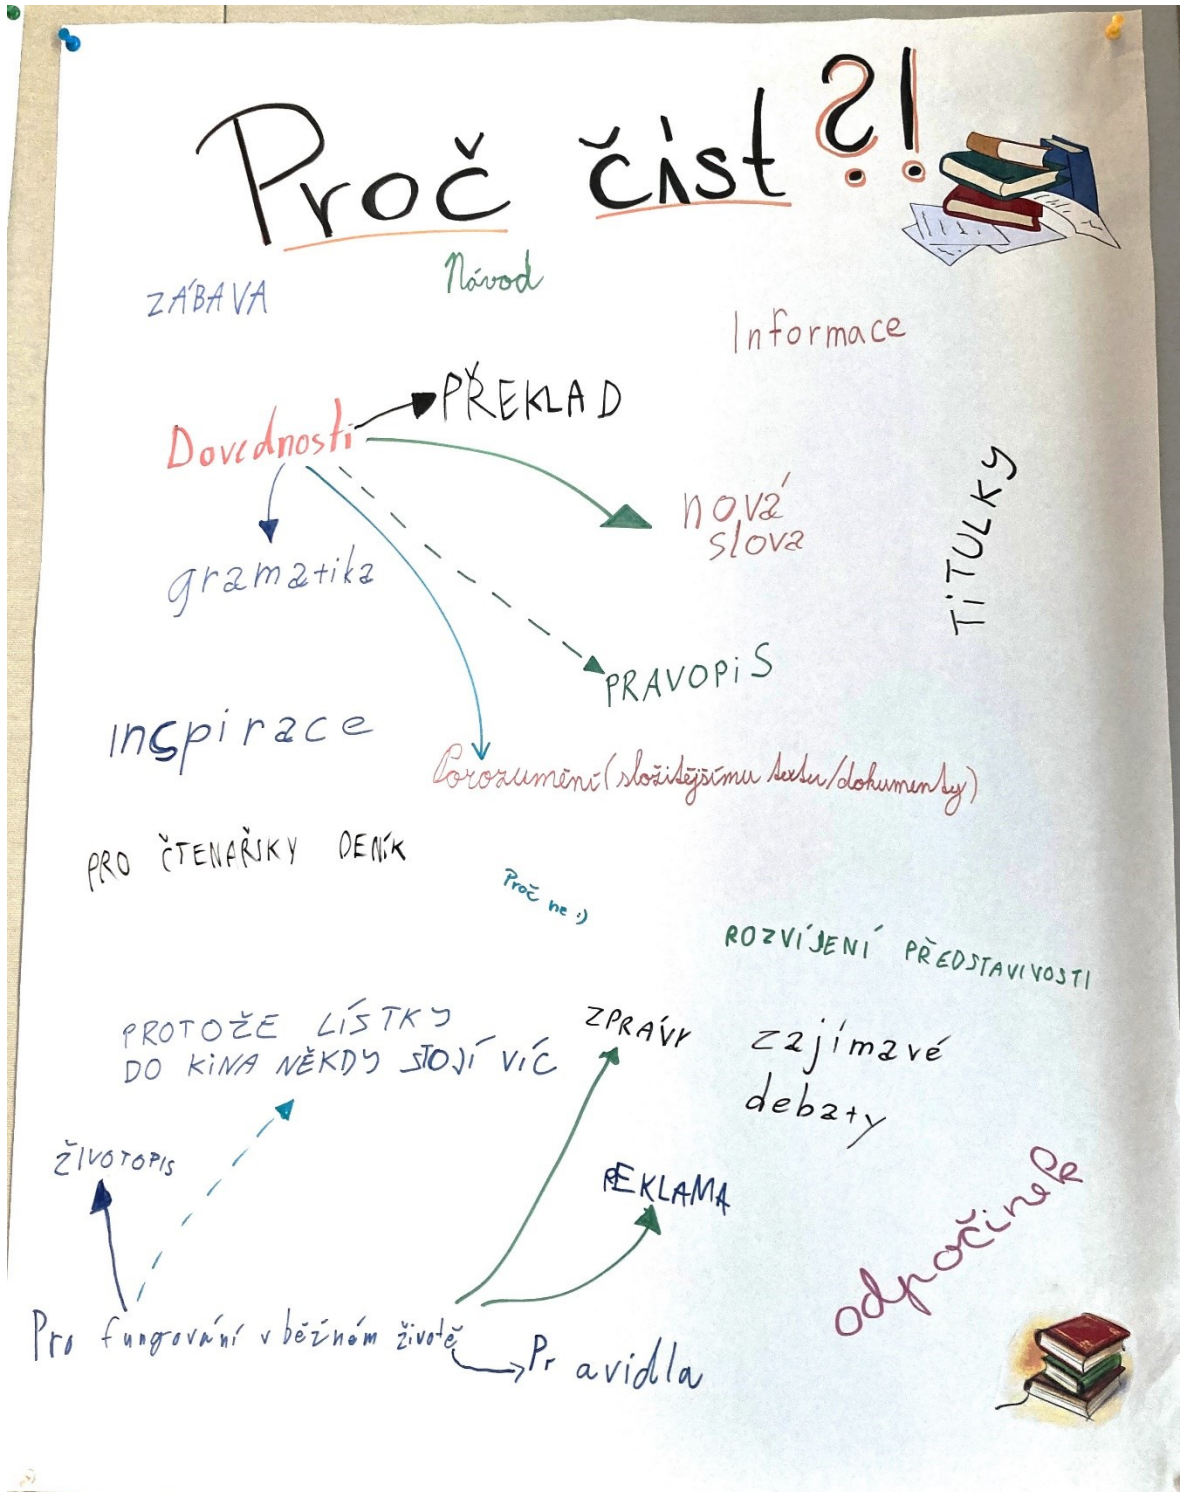 Proč číst ?!
ZÁBAVA
Návod
Informace
Dovednosti
PŘEKLAD
nová
slova
TiTULKY
gramatika
PRAVOPiS
Inspirace
Porozumění (složitějšímu textu/dokumenty)
PRO ČTENAŘSKY DENÍK
Proč ne :)
ROZVÍJENÍ PŘEDSTAVIVOSTI
PROTOŽE LÍSTKY
DO KiNA NĚKDY STOJÍ VÍC
ZPRÁVY
zajímavé
debaty
ŽIVOTOPIS
REKLAMA
odpočinek
Pro fungování v běžném životě
Pravidla